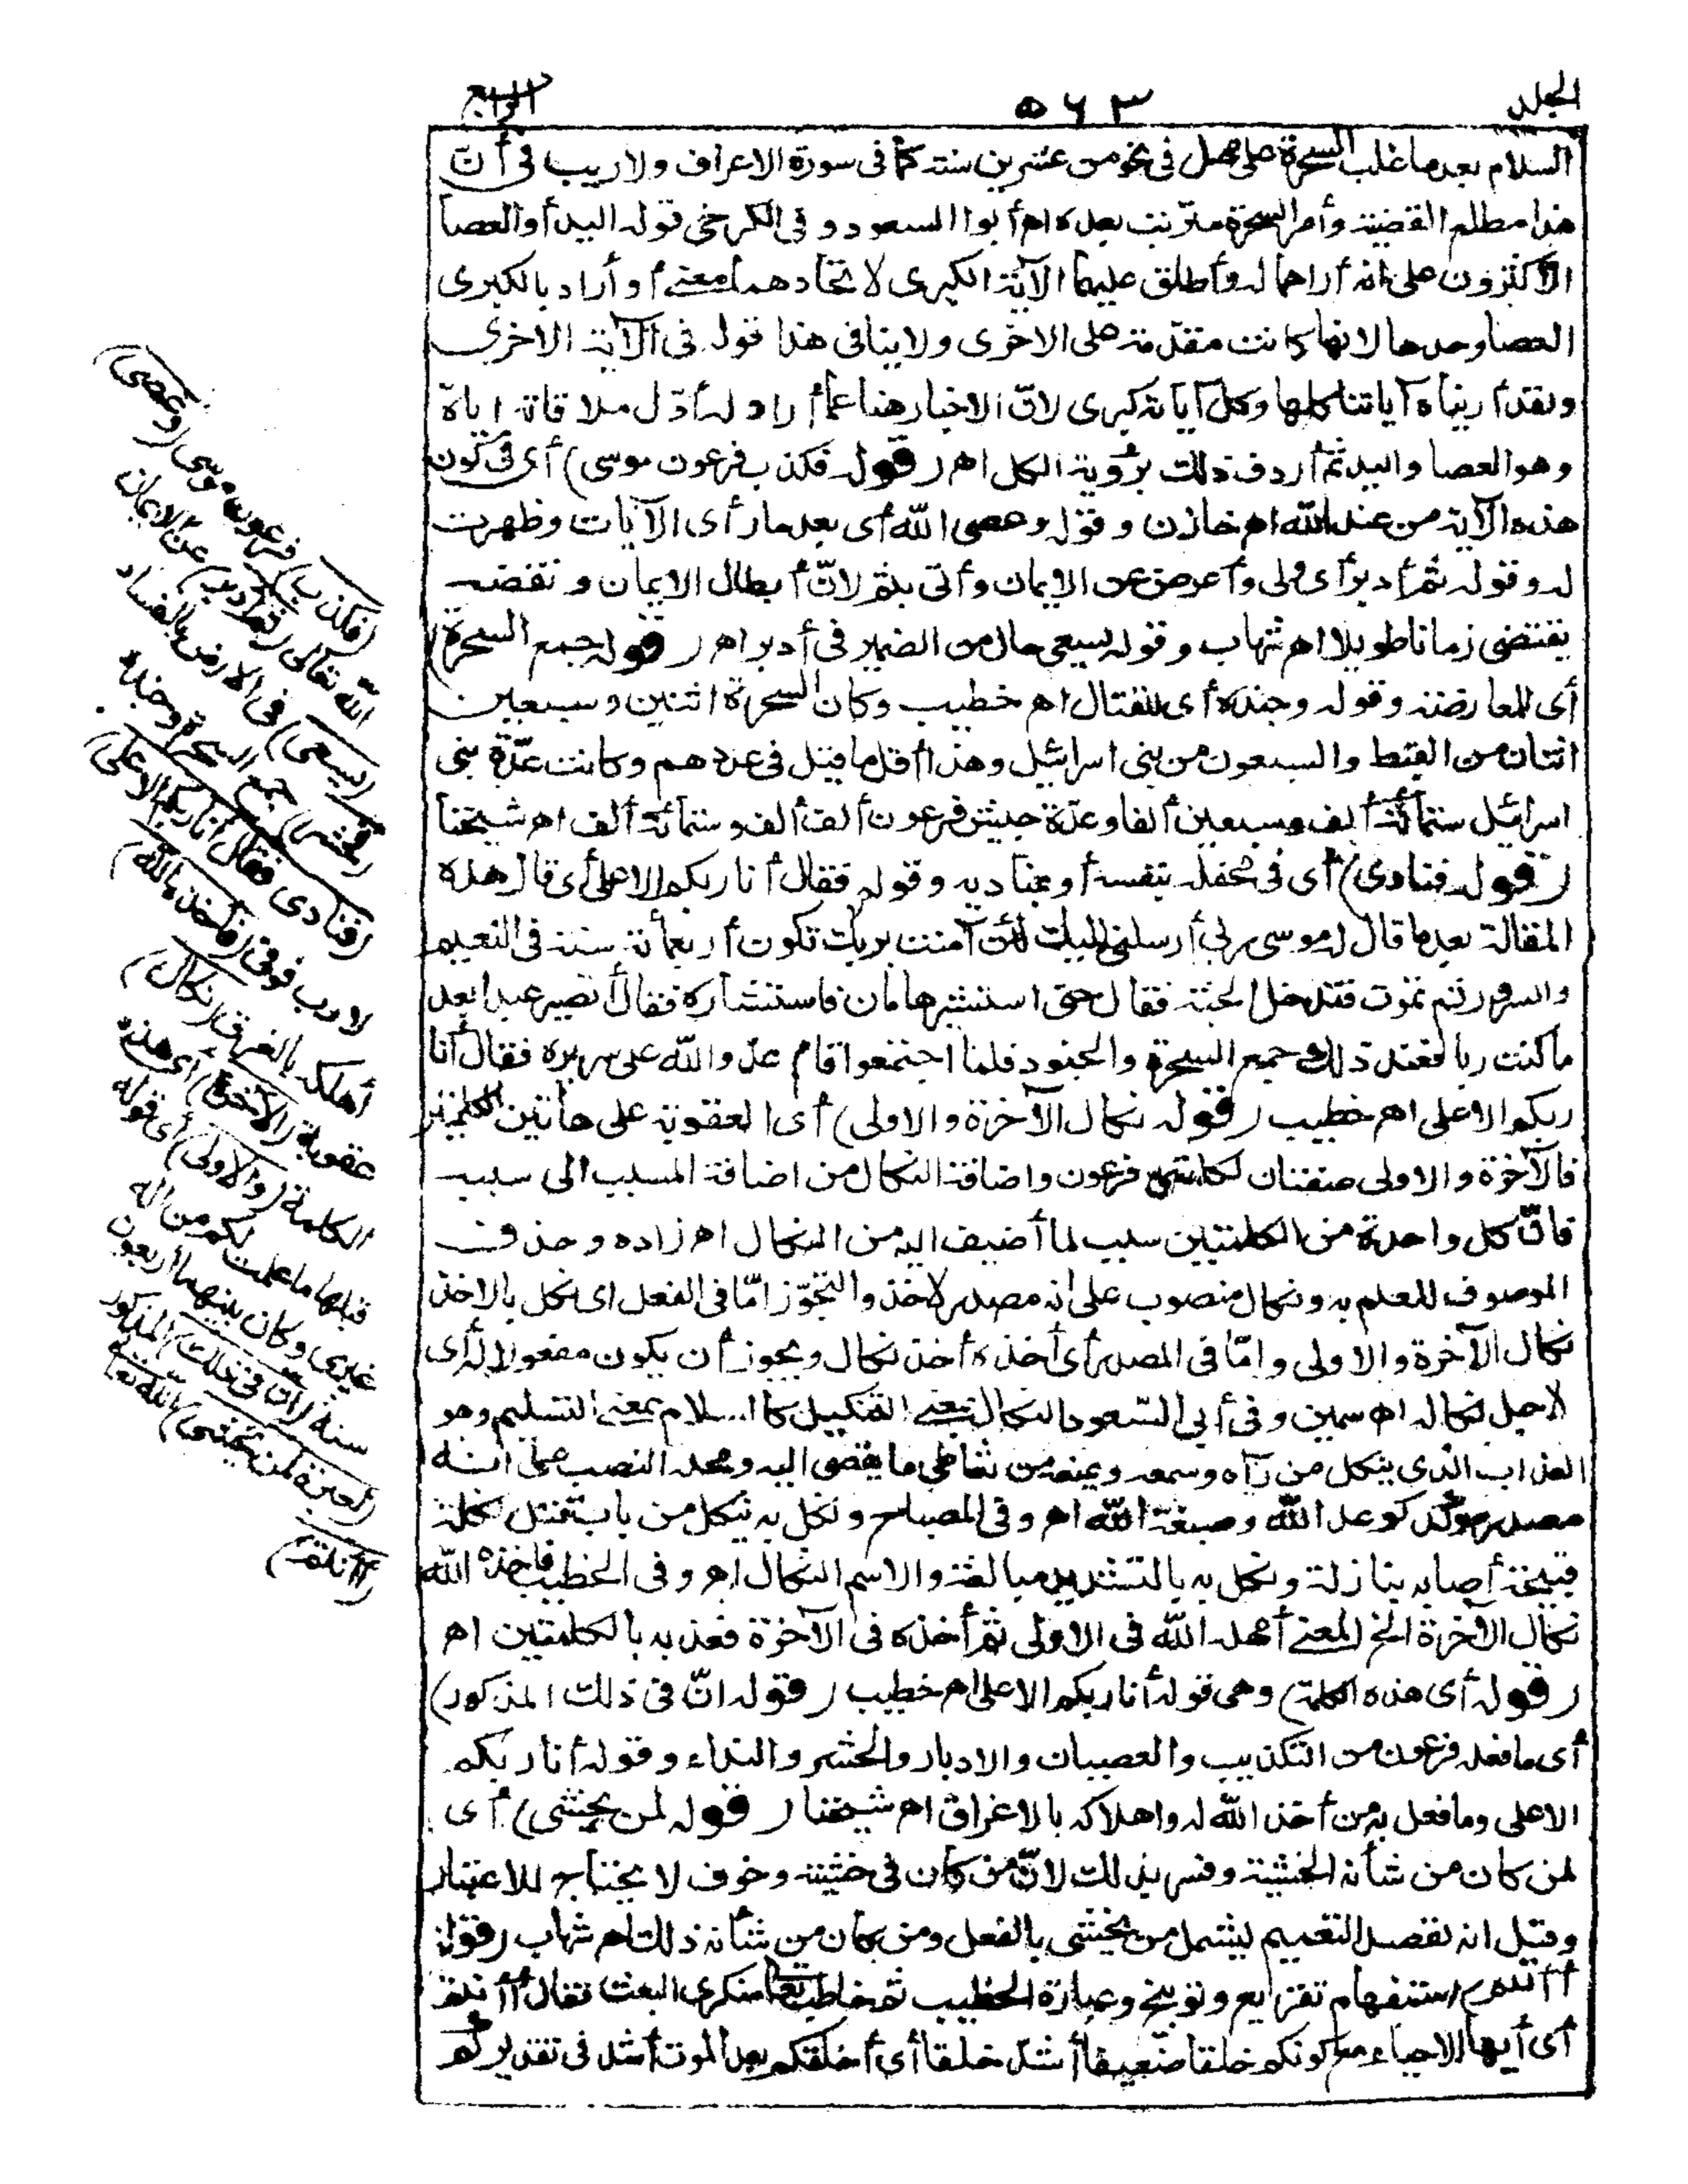 الجلد
٥٦٣
الرابع
السلام بعد ما غلب السحرة على مهل فى نحو من عشرين سنة كما فى سورة الاعراف ولا ريب فى أن
هذا مطلع القضية وأمر السحرة مترتب بعده اه أبو السعود وفى الكرخى قوله اليد أو العصا
الاكثرون على انه أراهما له وأطلق عليهما الآية الكبرى لاتحادهما معنى أو أراد بالكبرى
العصا وحدها لانها كانت مقدمة على الاخرى ولا ينافى هذا قوله فى الآية الاخرى
ولقد أريناه آياتنا كلها وكل آياته كبرى لانّ الاخبار هنا عما أراه له أوّل ملاقاته اياه
وهو العصا واليد ثم أردف ذلك برؤية الكل اه (قوله فكذب فرعون موسى) أى فى كون
هذه الآية من عند الله اه خازن وقوله وعصى الله أى بعد ما رأى الآيات وظهرت
له وقوله ثم أدبر أى ولى وأعرض عن الايمان وأتى بثم لانّ أبطال الايمان ونقضه
يقتضى زمانا طويلا اه شهاب وقوله يسعى حال من الضمير فى أدبر اه (قوله جمع السحرة)
أى للمعارضة وقوله وجنده أى للقتال اه خطيب وكان السحرة اثنين وسبعين
اثنان من القبط والسبعون من بنى اسرائيل وهذا أقل ما قيل فى عددهم وكانت عدّة بنى
اسرائيل ستمائة ألف وسبعين ألفا وعدّة جيش فرعون ألف ألف وستمائة ألف اه شيخنا
(قوله فنادى) أى فى محفله بنفسه أو بمناديه وقوله فقال أنا ربكم الاعلى أى قال هذه
المقالة بعد ما قال له موسى ربى أرسلنى اليك لئن آمنت بربك تكون أربعمائة سنة فى النعيم
والسرور ثم تموت فتدخل الجنة فقال حتى استشير هامان فاستشاره فقال أتصير عبدا بعد
ما كنت ربا فعند ذلك جمع السحرة والجنود فلما اجتمعوا قام عدو الله على سريره فقال أنا
ربكم الاعلى اه خطيب (قوله نكال الآخرة والاولى) أى العقوبة على هاتين الكلمتين
فالآخرة والاولى صفتان لكلمتى فرعون واضافة النكال من اضافة المسبب الى سببه
فانّ كل واحدة من الكلمتين سبب لما أضيف اليه من النكال اه زاده وحذف
الموصوف للعلم به ونكال منصوب على انه مصدر لاخذ والتجوّز امّا فى الفعل اى نكل بالاخذ
نكال الآخرة والاولى وامّا فى المصدر أى أخذه أخذ نكال ويجوز أن يكون مفعولا له أى
لاجل نكاله اه سمين وفى أبى السعود النكال بمعنى التنكيل كالسلام بمعنى التسليم وهو
العذاب الذى ينكل من رآه وسمعه ويمنعه من تعاطى ما يفضى اليه ومحله النصب على انه
مصدر مؤكد كوعد الله وصبغة الله اه وفى المصباح ونكل به ينكل من باب قتل نكلة
قبيحة أصابه بنازلة ونكل به بالتشديد مبالغة والاسم النكال اه وفى الخطيب فأخذه الله
نكال الآخرة الخ المعنى أمهله الله فى الاولى ثم أخذه فى الآخرة فعذبه بالكلمتين اه
(قوله أى هذه الكلمة) وهى قوله أنا ربكم الاعلى اه خطيب (قوله انّ فى ذلك المذكور)
أى ما فعله فرعون من التكذيب والعصيان والادبار والحشر والنداء وقوله أنا ربكم
الاعلى وما فعل به من أخذ الله له واهلاكه بالاغراق اه شيخنا (قوله لمن يخشى) أى
لمن كان من شأنه الخشية وفسر بذلك لانّ من كان فى خشية وخوف لا يحتاج للاعتبار
وقيل انه لقصد التعميم ليشمل من يخشى بالفعل ومن كان من شأنه ذلك اه شهاب (قوله
أأنتم) استفهام تقريع وتوبيخ وعبارة الخطيب ثم خاطب تعالى منكرى البعث فقال أأنتم
أى أيها الاحياء مع كونكم خلقا ضعيفا أشدّ خلقا أى أخلقكم بعد الموت أشد فى تقديركم
(فكذب) فرعون موسى (وعصى)
الله تعالى (ثم أدبر) عن الايمان
(يسعى) فى الارض بالفساد
(فحشر) جمع السحرة وجنده
(فنادى فقال أنا ربكم الاعلى)
لا رب فوقى (فأخذه الله)
أهلكه بالغرق (نكال)
عقوبة (الآخرة) أى هذه
الكلمة (والاولى) أى قوله
قبلها ما علمت لكم من اله
غيرى وكان بينهما أربعون
سنة (انّ فى ذلك) المذكور
(لعبرة لمن يخشى) الله تعالى
(أأنتم)